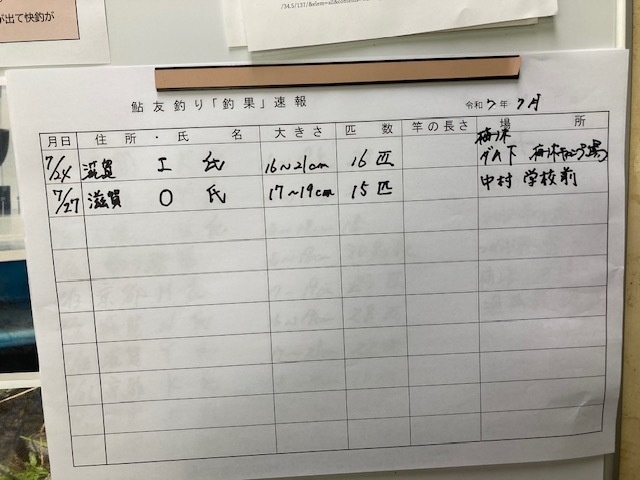 が出て快釣が
鮎友釣り「釣果」速報
令和7年 7月
月日 住所・氏名 大きさ 匹数 竿の長さ 場所
7/24 滋賀 I 氏 16~21cm 16匹 梅ノ木
ダム下 梅ノ木キャンプ場
7/27 滋賀 O 氏 17~19cm 15匹 中村 学校前